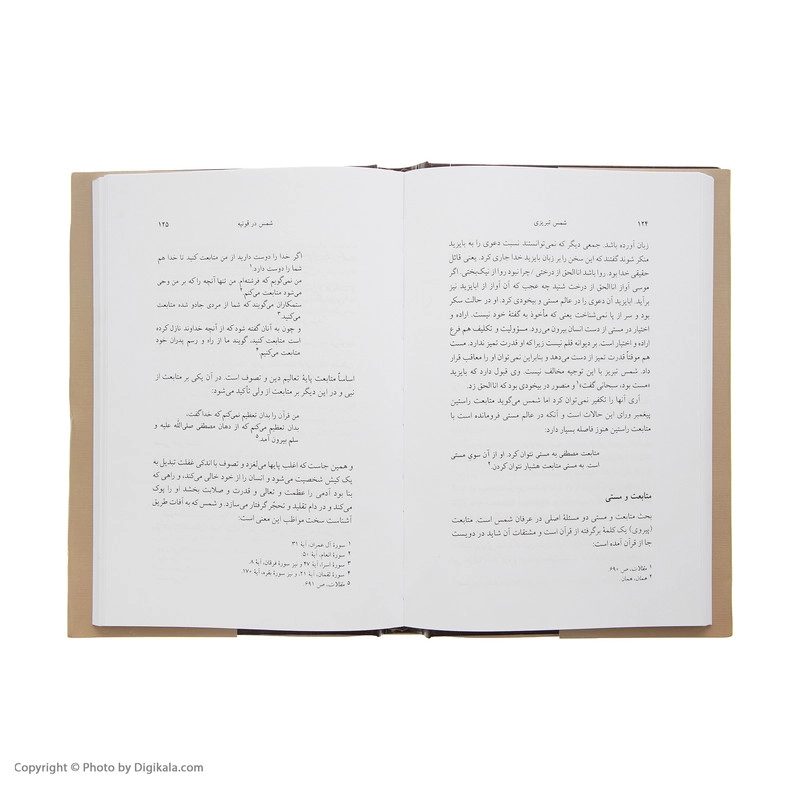 ۱۲۴
شمس تبریزی
زبان آورده باشد. جمعی دیگر که نمی‌توانستند نسبت دعوی را به بایزید
منکر شوند گفتند که این سخن را بر زبان بایزید خدا جاری کرد. یعنی قائل
حقیقی خدا بود. روا باشد اناالحق از درختی / چرا نبود روا از نیک‌بختی. اگر
موسی آواز اناالحق از درخت شنید چه عجب که آن آواز از ابایزید نیز
برآید. ابایزید آن دعوی را در عالم مستی و بیخودی کرد. او در حالت سکر
بود و سر از پا نمی‌شناخت یعنی که مأخوذ به گفتهٔ خود نیست. اراده و
اختیار در مستی از دست انسان بیرون می‌رود. مسؤولیت و تکلیف هم فرع
اراده و اختیار است. بر دیوانه قلم نیست زیرا که او قدرت تمیز ندارد. مست
هم موقتاً قدرت تمیز از دست می‌دهد و بنابراین نمی‌توان او را معاقب قرار
داد. شمس تبریز با این توجیه مخالف نیست. وی قبول دارد که بایزید
«مست بود، سبحانی گفت»۱ و منصور در بیخودی بود که اناالحق زد.
آری آنها را تکفیر نمی‌توان کرد اما شمس می‌گوید متابعت راستین
پیغمبر ورای این حالات است و آنکه در عالم مستی فرومانده است با
متابعت راستین هنوز فاصله بسیار دارد:
متابعت مصطفی به مستی نتوان کرد. او از آن سوی مستی
است. به مستی متابعت هشیار نتوان کردن.۲
متابعت و مستی
بحث متابعت و مستی دو مسئلهٔ اصلی در عرفان شمس است. متابعت
(پیروی) یک کلمهٔ برگرفته از قرآن است و مشتقات آن شاید در دویست
جا از قرآن آمده است:
۱ مقالات، ص ۶۹۰.
۲ همان، همان.
شمس در قونیه
۱۲۵
اگر خدا را دوست دارید از من متابعت کنید تا خدا هم
شما را دوست دارد.۱
من نمی‌گویم که فرشته‌ام. من تنها آنچه را که بر من وحی
می‌شود متابعت می‌کنم.۲
ستمکاران می‌گویند که شما از مردی جادو شده متابعت
می‌کنید.۳
و چون به آنان گفته شود که از آنچه خداوند نازل کرده
است متابعت کنید، گویند ما از راه و رسم پدران خود
متابعت می‌کنیم.۴
اساساً متابعت پایهٔ تعالیم دین و تصوف است. در آن یکی بر متابعت از
نبی و در این دیگر بر متابعت از ولی تأکید می‌شود:
من قرآن را بدان تعظیم نمی‌کنم که خدا گفت،
بدان تعظیم می‌کنم که از دهان مصطفی صلی‌الله علیه و
سلم بیرون آمد.۵
و همین جاست که اغلب پایها می‌لغزد و تصوف با اندکی غفلت تبدیل به
یک کیش شخصیت می‌شود و انسان را از خود خالی می‌کند، و راهی که
بنا بود آدمی را عظمت و تعالی و قدرت و صلابت بخشد او را پوک
می‌کند و در دام تقلید و تحجّر گرفتار می‌سازد. و شمس که به آفات طریق
آشناست سخت مواظب این معنی است:
۱ سورهٔ آل عمران، آیهٔ ۳۱
۲ سورهٔ انعام، آیهٔ ۵۰.
۳ سورهٔ اسراء، آیهٔ ۴۷ و نیز سورهٔ فرقان، آیهٔ ۸.
۴ سورهٔ لقمان، آیهٔ ۲۱، و نیز سورهٔ بقره، آیهٔ ۱۷۰.
۵ مقالات، ص ۶۹۱.
Copyright © Photo by Digikala.com